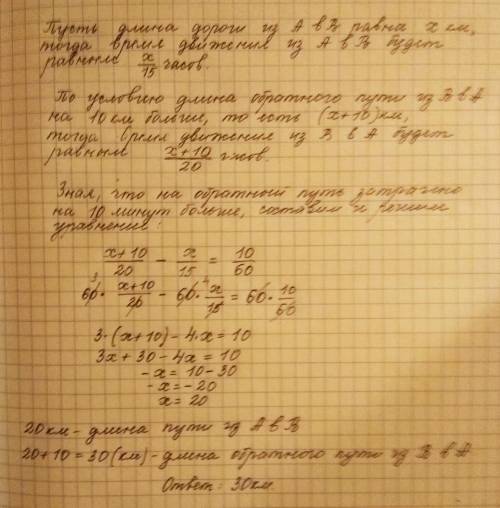 Пусть длина дороги из А в В равна x км,
тогда время движения из А в В будет
равным x/15 часов.
По условию длина обратного пути из В в А
на 10 км больше, то есть (x+10) км,
тогда время движения из В в А будет
равным x+10/20 часов.
Зная, что на обратный путь затрачено
на 10 минут больше, составим и решим
уравнение:
x+10/20 − x/15 = 10/60
60 · x+10/20 − 60 · x/15 = 60 · 10/60
3·(x+10) − 4·x = 10
3x + 30 − 4x = 10
-x = 10 − 30
-x = −20
x = 20
20 км − длина пути из А в В
20+10 = 30 (км) − длина обратного пути из В в А
Ответ: 30 км.